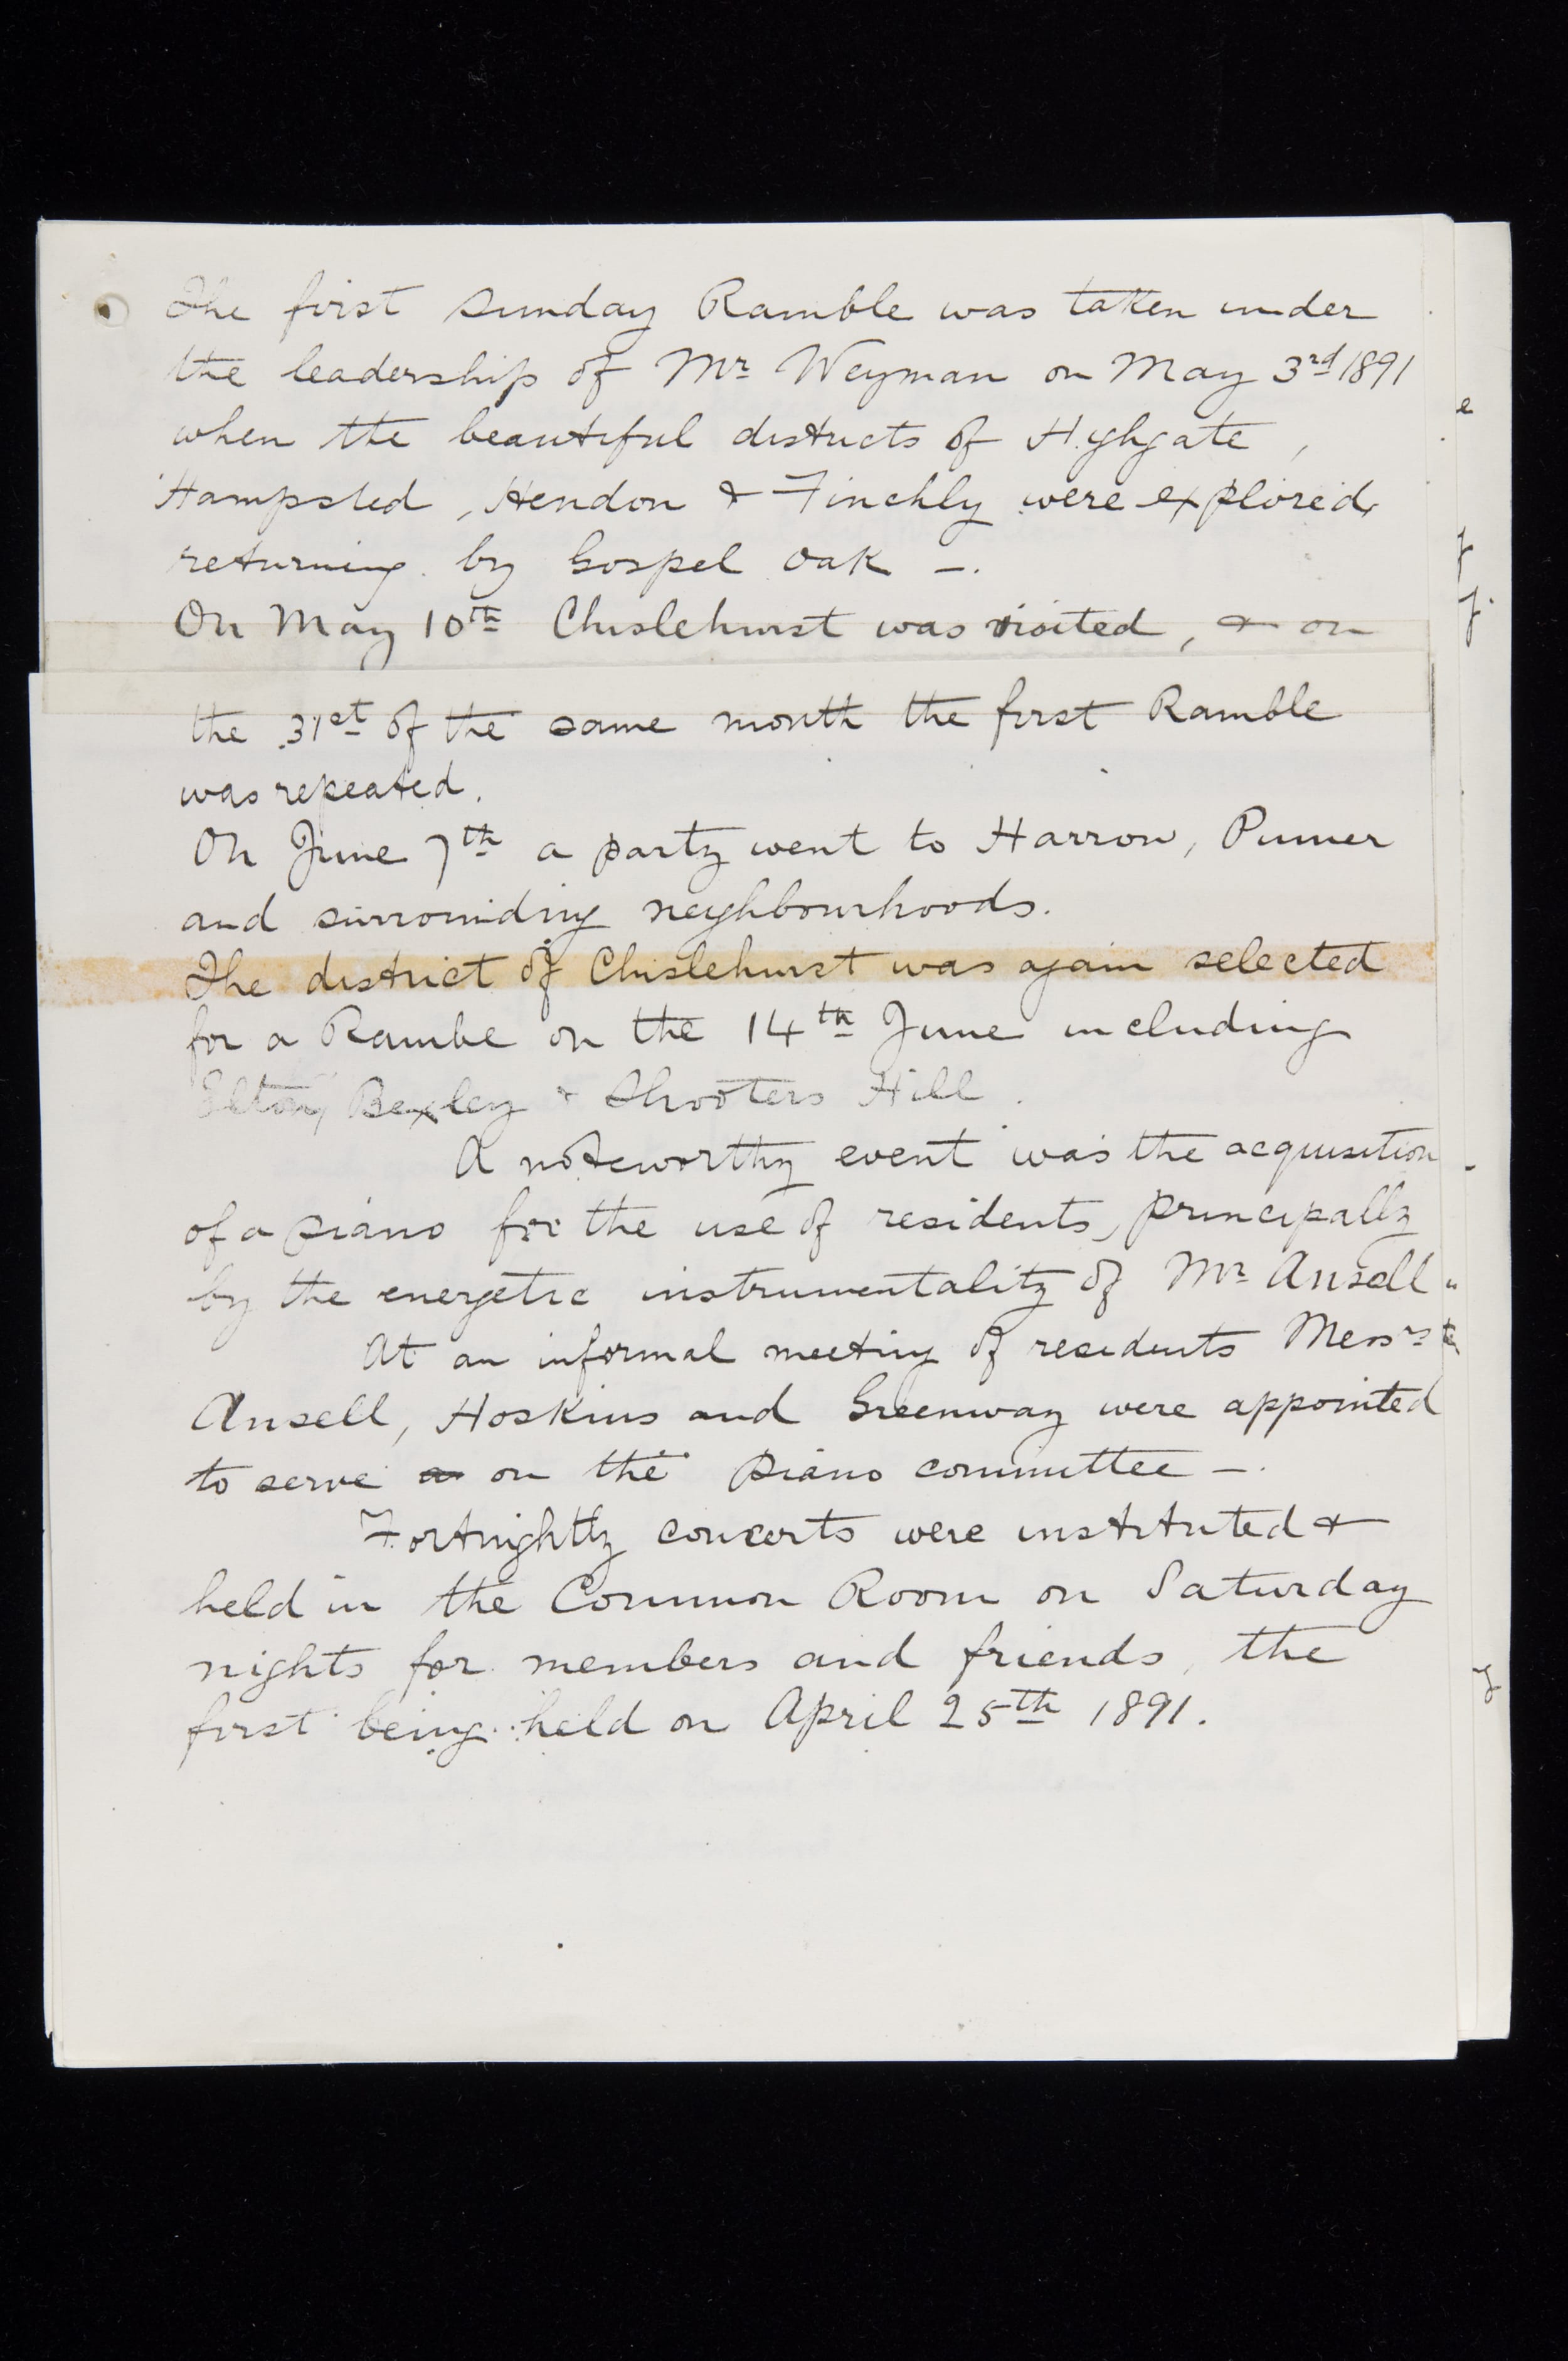 The first Sunday Ramble was taken under
the leadership of Mr Weyman on May 3rd 1891
when the beautiful districts of Highgate,
Hampsted, Hendon & Finchly were explored,
returning by Gospel Oak -.
On May 10th Chislehurst was visited, & on
the 31st of the same month the first Ramble
was repeated.
On June 7th a party went to Harrow, Pinner
and surrounding neighbourhoods.
The district of Chislehurst was again selected
for a Rambe on the 14th June including
Eltom, Bexley & Shooters Hill.
A noteworthy event was the acquisition
of a piano for the use of residents, principally
by the energetic instrumentality of Mr Ansell
At an informal meeting of residents Messrs
Ansell, Hoskins and Greenway were appointed
to serve on the piano committee -.
Fortnightly concerts were instituted &
held in the Common Room on Saturday
nights for members and friends, the
first being held on April 25th 1891.